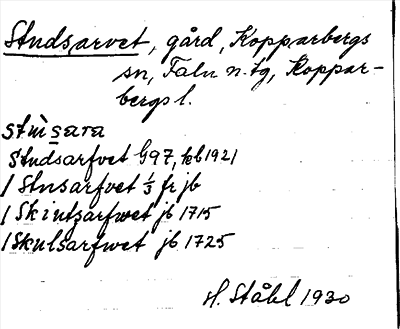 Studsarvet, gård, Kopparbergs
sn, Falu n. tg, Koppar-
bergs l.
stùsara
Studsarfvet G97, kb 1921
/ Stusarfvet ⅓ fr jb
/ Skintsarfwet jb 1715
/ Skulsarfwet jb 1725
H. Ståhl 1930